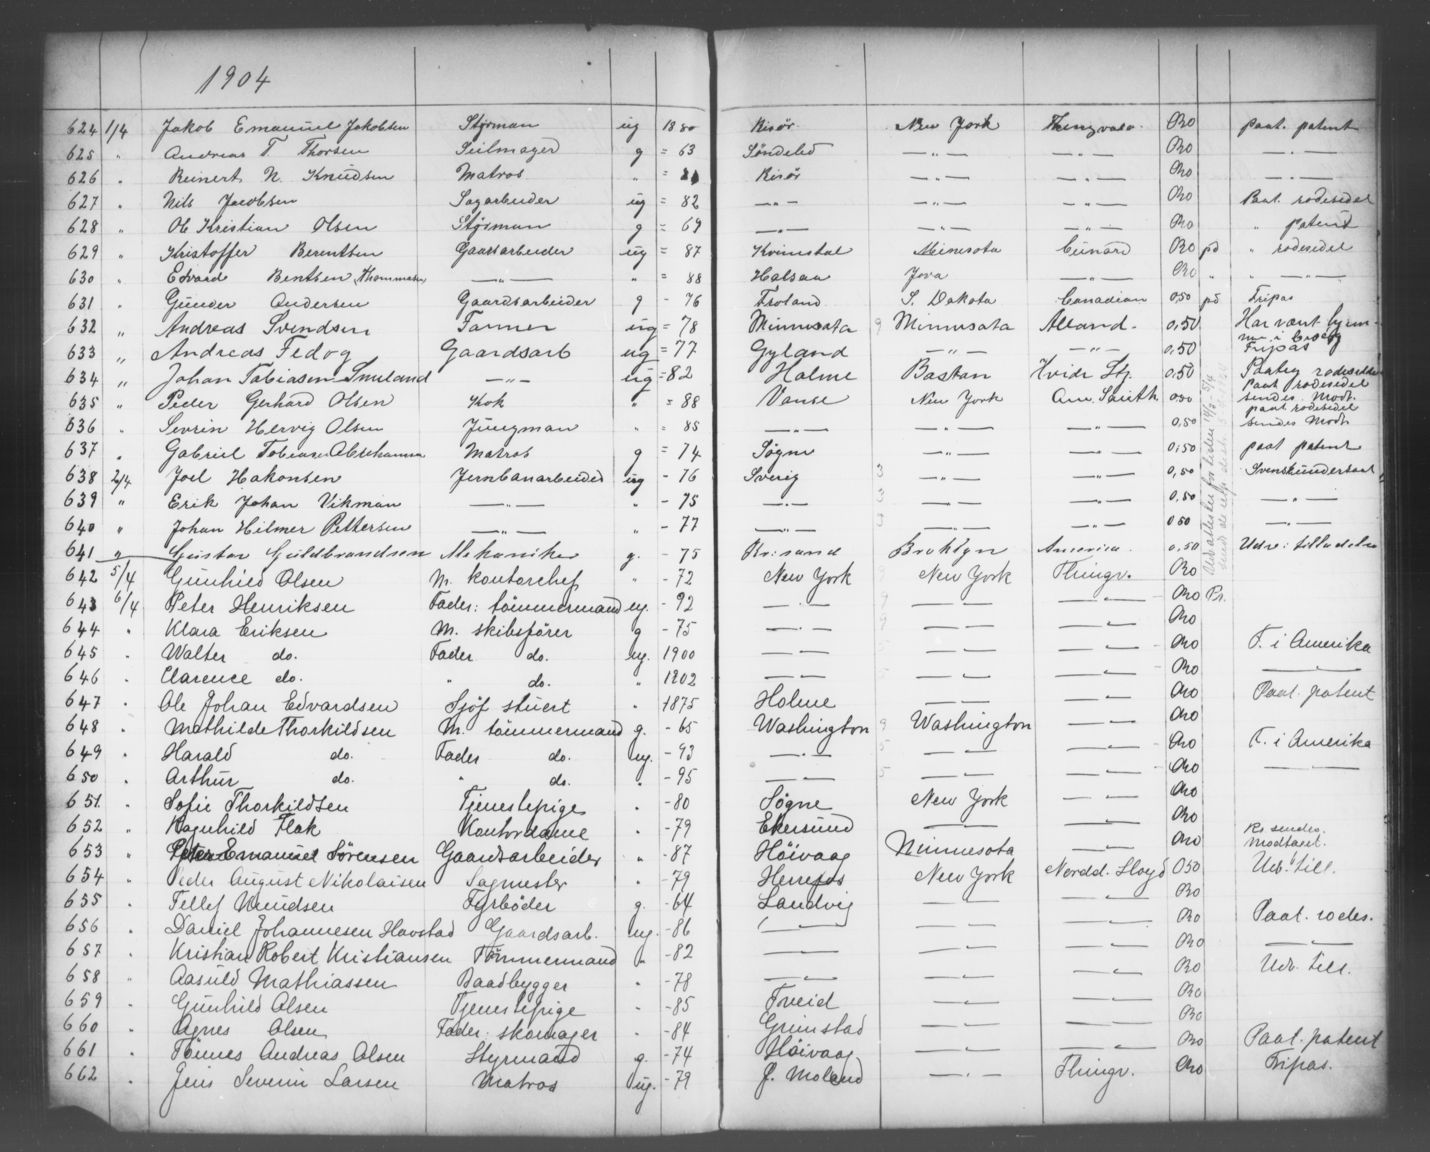 1904
624 1/4 Jakob Emanuel Jakobsen Styrman ug 1880 Risör New York Thingvalla Pro paat. patent
625 " Andreas T Thorsen Seilmager g = 63 Söndeled —"— —"— Pro —"—
626 " Reinert N. Knudsen Matros " = Risör —"— —"— Pro
627 . Nils Jacobsen Sagarbeider ug = 82 —"— —"— —"— Pro Paat. rodesedel
628 " Ole Kristian Olsen Styrman g = 69 —"— —"— —"— Pro " patent
629 " Kristoffer Berentsen Gaardsarbeider ug = 87 Kvinesdal Minesota Cunard Pro pd " rodesedel
630 . Edvard Bentsen Thommasen —"— " = 88 Halsaa Jova —"— Pro " " —"—
631 . Gunder Andersen Gaardsarbeider g - 76 Froland S. Dakota Canadian 0,50 pd Fripas
632 " Andreas Svendsen Farmer ug = 78 Minnesota 9 Minnesota Alland. 0,50 Har vært hjem-
633 " Andreas Fedog Gaardsarb ug = 77 Gyland —"— —"— 0,50 Fripas
634 " Johan Tobiasen Smeland —"— ug = 82 Holme Bostan Hvide Stj. 0,50 Paateg rodeseddel
635 " Peder Gerhard Olsen Kok " = 88 Vanse New York Am. Smith 0,50 Paat rodesedel sendes Modt.
636 . Sevrin Hervig Olsen Jungman " = 85 —"— —"— —"— 0,50 paat rodesedel sendes Modt
637 . Gabriel Tobiasen Matros g = 74 Søgne —"— —"— 0,50 paat patent
638 2/4 Joel Hakonsen Jernbanarbeided ug - 76 Sverig 3 —"— —"— 0,50 Svensk undersaat
639 " Erik Johan Vikman —"— " - 75 —"— 3 —"— —"— 0,50 —"—
640 " Johan Hilmer Pettersen —"— " - 77 —"— 3 —"— —"— 0 50 —"—
641 " Gustav Guldbrandsen Mekaniker g. - 75 Kr:sand Broklyn America. 0,50 Udv: tilladelse
642 5/4 Gunhild Olsen M. kontorchef " - 72 New York 9 New York Thingv. Pro
643 6/4 Peter Henriksen Fader: tömmermand ug. - 92 —"— 9 —"— —"— Pro Pr.
644 . Klara Eriksen M. skibsförer g - 75 —"— 9 —"— —"— Pro
645 . Walter do. Fader do. ug. 1900 —"— 5 —"— —"— Pro F. i Amerika
646 . Clarence do. " do. " 1902 —"— 5 —"— —"— Pro —"—
647 . Ole Johan Edvardsen Sjöf stuert " 1875 Holme —"— —"— Pro Paat. patent
648 . Mathilde Thorkildsen M. tömmermand g. - 65 Washington 9 Washington —"— Pro
649 . Harald do. Fader do. ug. - 93 —"— 5 —"— —"— Pro F. i Amerika
650 . Arthur do. " do. . - 95 —"— 5 —"— —"— Pro —"—
651 . Sofie Thorkildsen Tjenestepige . - 80 Søgne New York —"— Pro
652 " Ragnhild Flak Kontordame . - 79 Ekersund —"— —"— Pro
653 " Peter Emanuel Sørensen Gaardsarbeider " - 87 Höivaag Minnesota —"— Pro Rs sendes. Modtaget.
654 . Peder August Nikolaisen Sagmester . - 79 Herefos New York Nordd. Lloyd 0.50 Udv. till.
655 . Tellef Knudsen Fyrbøder g. - 64 Landvig —"— —"— Pro
656 . Daniel Johannesen Havstad Gaardsarb. ug. - 86 —"— —"— —"— Pro Paat. rodes.
657 . Kristian Robert Kristiansen Tömmermand " - 82 —"— —"— —"— Pro —"—
658 " Aasuld Mathiassen Baadbygger . - 78 —"— —"— —"— Pro Udv. till.
659 . Gunhild Olsen Tjenestepige . - 85 Tveid —"— —"— Pro
660 . Agnes Olsen Fader. skomager . - 84 Grimstad —"— —"— Pro
661 . Tönnes Andreas Olsen Styrmand g. - 74 Höivaag —"— —"— Pro Paat. patent
662 . Jens Severin Larsen Matros ug. - 79 Ø. Moland —"— Thingv. Pro Fripas.